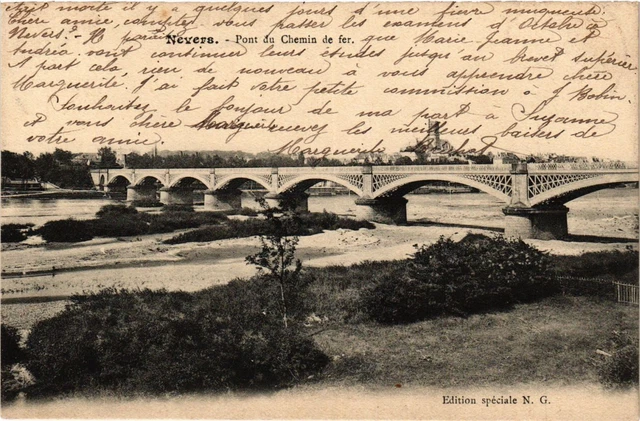 était morte il y a quelques jours d'une fièvre muqueuse.
chère amie, comptez vous passer les examens d'Octobre à
Nevers? Il paraît que Marie-Jeanne et
Nevers. - Pont du Chemin de fer.
Andréa vont continuer leurs études jusqu'au brevet supérieur
A part cela rien de nouveau à vous apprendre chère
Marguerite. J'ai fait votre petite commission à J. Bobin.
Souhaitez le bonjour de ma part à Suzanne
et vous chère Marguerite recevez les meilleurs baisers de
votre amie Marguerite
Edition spéciale N. G.